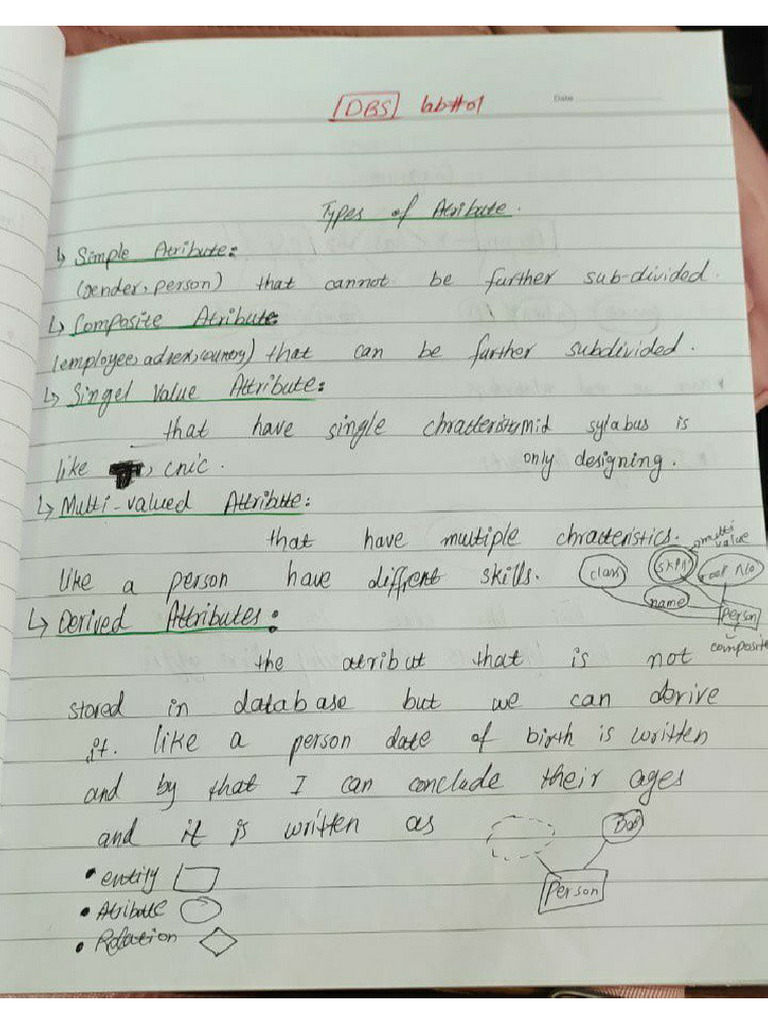 [DBS] lab#01
Date
Types of Atribute.
↳ Simple Atribute:
(Gender, person) that cannot be further sub-divided.
↳ Composite Atribute:
(employee, adress, country) that can be further subdivided.
↳ Singel Value Attribute:
that have single chracteristic mid sylabus is
like , cnic. only designing.
↳ Multi-valued Attribute:
that have multiple chracteristics.
like a person have different skills.
multi
value
class
skill
roll No
name
person
composite
↳ Derived Attributes:
the atribut that is not
stored in database but we can derive
it. like a person date of birth is written
and by that I can conclude their ages
and it is written as
DOB
Person
• entity
• Atribute
• Relation